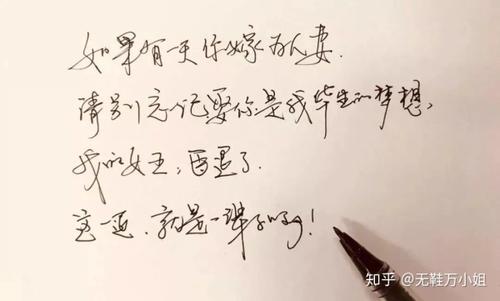 如果有一天你嫁为人妻.
请别忘记娶你是我毕生的梦想,
我的女王,再退了.
这一退.就是一辈子呀!
知乎 @无鞋万小姐